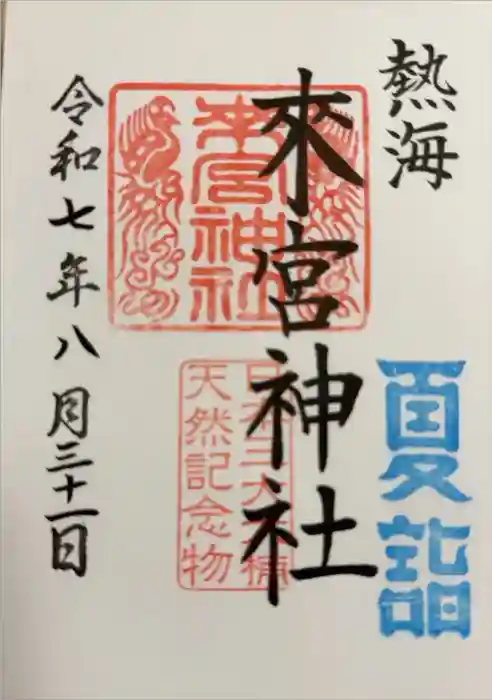 熱海
夏詣
來宮神社
來宮神社
天然記念物
令和七年八月三十一日